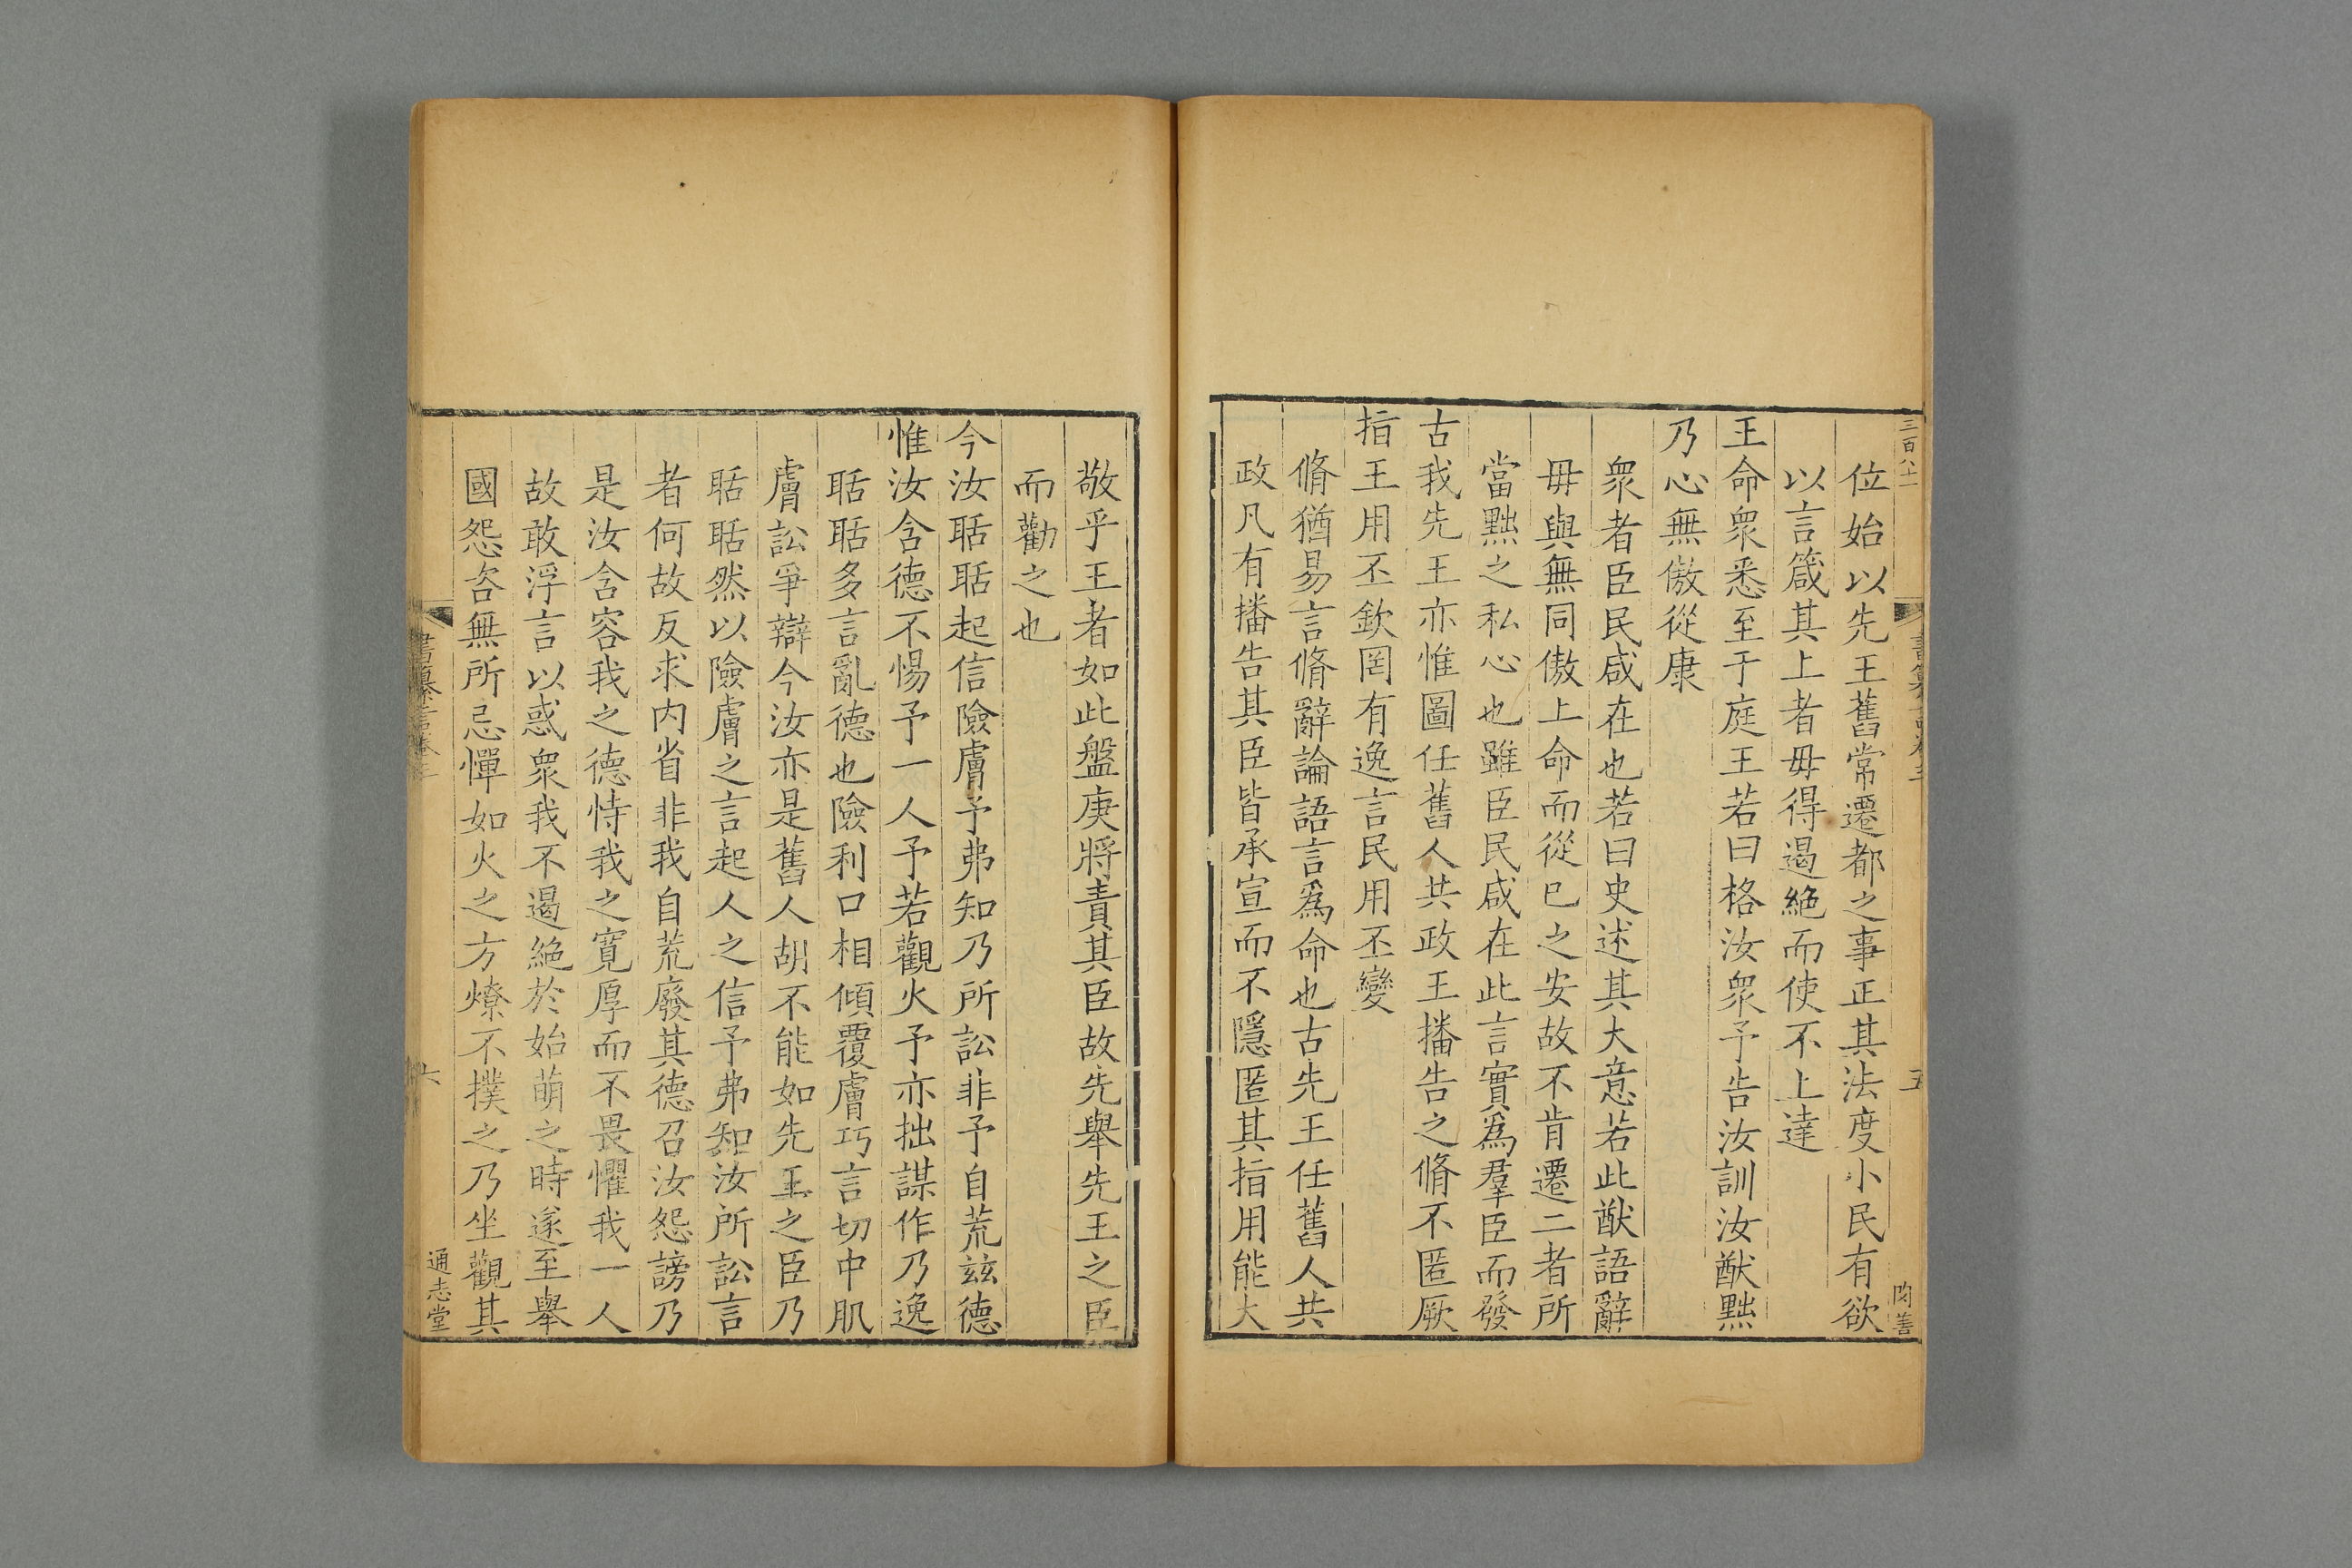 三百八十一
位始以先王舊常遷都之事正其法度小民有欲
以言箴其上者毋得遏絶而使不上達
王命衆悉至于庭王若曰格汝衆予告汝訓汝猷黜
乃心無傲從康
衆者臣民咸在也若曰史述其大意若此猷語辭
毋與無同傲上命而從已之安故不肯遷二者所
當黜之私心也雖臣民咸在此言實爲羣臣而發
古我先王亦惟圖任舊人共政王播告之脩不匿厥
指王用丕欽罔有逸言民用丕變
脩猶易言脩辭論語言爲命也古先王任舊人共
政凡有播告其臣皆承宣而不隱匿其指用能大
五
敬乎王者如此盤庚將責其臣故先舉先王之臣
而勸之也
今汝聒聒起信險膚予弗知乃所訟非予自荒兹德
惟汝含德不惕予一人予若觀火予亦拙謀作乃逸
聒聒多言亂德也險利口相傾覆膚巧言切中肌
膚訟爭辯今汝亦是舊人胡不能如先王之臣乃
聒聒然以險膚之言起人之信予弗知汝所訟言
者何故反求内省非我自荒廢其德召汝怨謗乃
是汝含容我之德恃我之寛厚而不畏懼我一人
故敢浮言以惑衆我不遏絶於始萌之時遂至舉
國怨咨無所忌憚如火之方燎不撲之乃坐觀其
書纂言卷三
六
通志堂